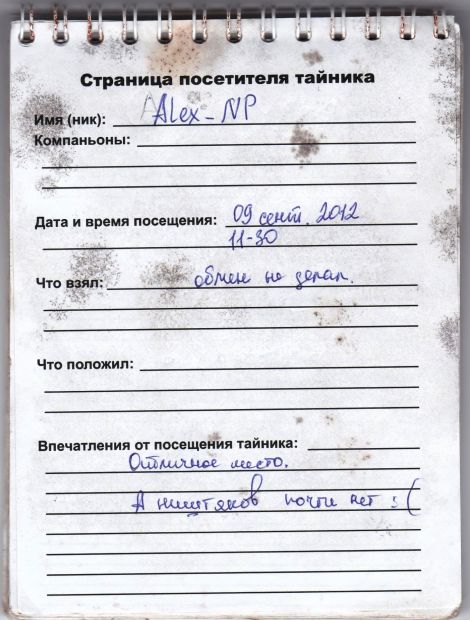 Страница посетителя тайника
Имя (ник): Alex-NP
Компаньоны:
Дата и время посещения: 09 сент. 2012
11-30
Что взял: обмен не делал.
Что положил:
Впечатления от посещения тайника:
Отличное место.
А ништяков почти нет :(